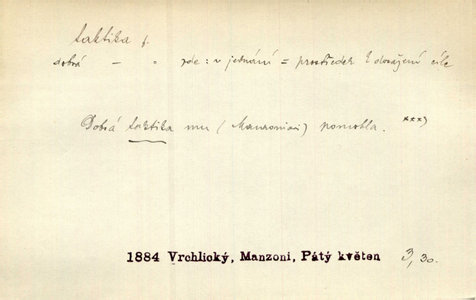 taktika f.
dobrá – " zde: v jednání = prostředek k dosažení cíle
Dobrá taktika mu (Manzonimu) pomohla. ***)
1884 Vrchlický, Manzoni, Pátý květen 3, 30.